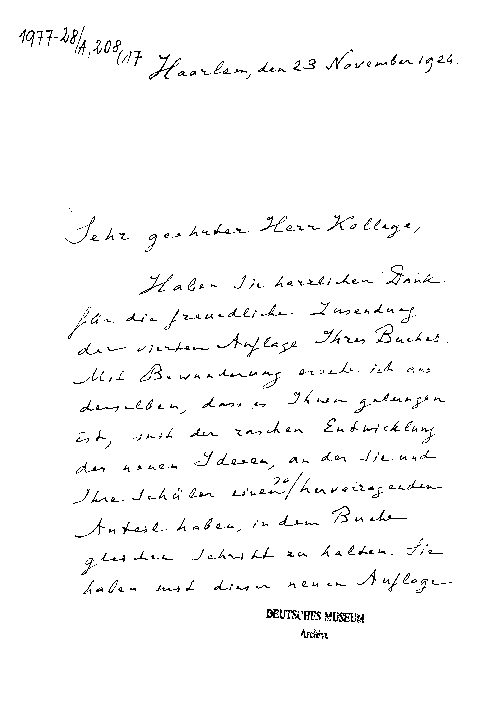 1977-28/A,208/17
Haarlem, den 23 November 1924.
Sehr geehrter Herr Kollege,
Haben Sie herzlichen Dank
für die freundliche Zusendung
der vierten Auflage Ihres Buches.
Mit Bewunderung ersehe ich aus
derselben, dass es Ihnen gelungen
ist, mit der raschen Entwicklung
der neuen Ideeen, an der Sie und
Ihre Schüler einen so/hervorragenden
Anteil haben, in dem Buche
gleichen Schritt zu halten. Sie
haben mit dieser neuen Auflage
DEUTSCHES MUSEUM
Archiv